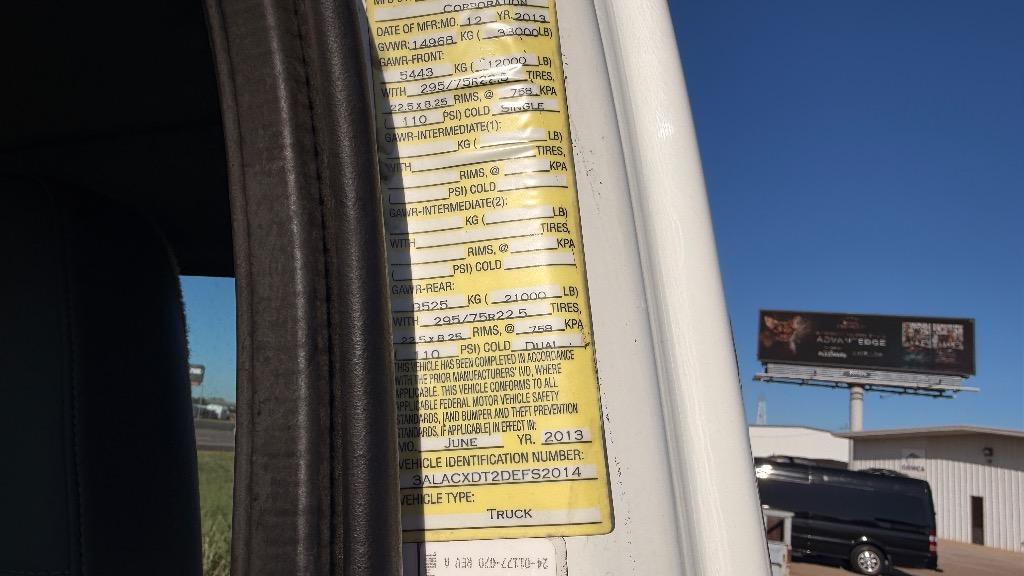 CORPORATION
DATE OF MFR:MO. 12 YR. 2013
GVWR: 14968 KG ( 33000 LB)
GAWR-FRONT:
5443 KG ( 12000 LB)
WITH 295/75R22.5 TIRES,
22.5 x 8.25 RIMS, @ 758 KPA
( 110 PSI) COLD SINGLE
GAWR-INTERMEDIATE(1):
KG ( LB)
WITH TIRES,
RIMS, @ KPA
( PSI) COLD
GAWR-INTERMEDIATE(2):
KG ( LB)
WITH TIRES,
RIMS, @ KPA
( PSI) COLD
GAWR-REAR:
9525 KG ( 21000 LB)
WITH 295/75R22.5 TIRES,
22.5 x 8.25 RIMS, @ 758 KPA
110 PSI) COLD DUAL
THIS VEHICLE HAS BEEN COMPLETED IN ACCORDANCE
WITH THE PRIOR MANUFACTURERS' IVD, WHERE
APPLICABLE. THIS VEHICLE CONFORMS TO ALL
APPLICABLE FEDERAL MOTOR VEHICLE SAFETY
STANDARDS, [AND BUMPER AND THEFT PREVENTION
STANDARDS, IF APPLICABLE] IN EFFECT IN:
MO. JUNE YR. 2013
VEHICLE IDENTIFICATION NUMBER:
3ALACXDT2DEFS2014
VEHICLE TYPE:
TRUCK
24-01177-070 REV A
ADVANTEDGE